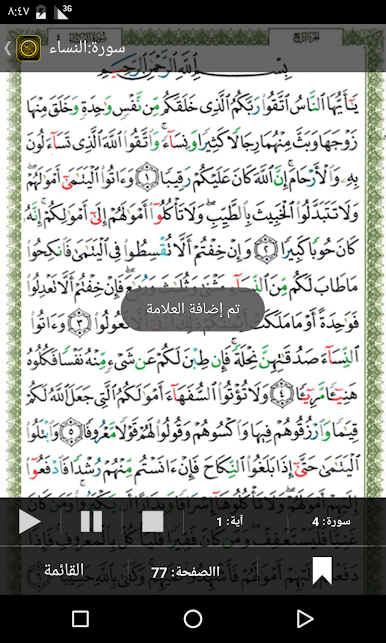 ٨:٤٧
3G
سورة:النساء
بِسْمِ اللَّهِ الرَّحْمَٰنِ الرَّحِيمِ
يَٰٓأَيُّهَا ٱلنَّاسُ ٱتَّقُوا۟ رَبَّكُمُ ٱلَّذِى خَلَقَكُم مِّن نَّفْسٍ وَٰحِدَةٍ وَخَلَقَ مِنْهَا
زَوْجَهَا وَبَثَّ مِنْهُمَا رِجَالًا كَثِيرًا وَنِسَآءً ۚ وَٱتَّقُوا۟ ٱللَّهَ ٱلَّذِى تَسَآءَلُونَ
بِهِۦ وَٱلْأَرْحَامَ ۚ إِنَّ ٱللَّهَ كَانَ عَلَيْكُمْ رَقِيبًا ١ وَءَاتُوا۟ ٱلْيَتَٰمَىٰٓ أَمْوَٰلَهُمْ ۖ
وَلَا تَتَبَدَّلُوا۟ ٱلْخَبِيثَ بِٱلطَّيِّبِ ۖ وَلَا تَأْكُلُوٓا۟ أَمْوَٰلَهُمْ إِلَىٰٓ أَمْوَٰلِكُمْ ۚ إِنَّهُۥ
كَانَ حُوبًا كَبِيرًا ٢ وَإِنْ خِفْتُمْ أَلَّا تُقْسِطُوا۟ فِى ٱلْيَتَٰمَىٰ فَٱنكِحُوا۟
مَا طَابَ لَكُم مِّنَ ٱلنِّسَآءِ مَثْنَىٰ وَثُلَٰثَ وَرُبَٰعَ ۖ فَإِنْ خِفْتُمْ أَلَّا تَعْدِلُوا۟
تم إضافة العلامة
فَوَٰحِدَةً أَوْ مَا مَلَكَتْ تَعُولُوا۟ ٣ وَءَاتُوا۟
ٱلنِّسَآءَ صَدُقَٰتِهِنَّ نِحْلَةً ۚ فَإِن طِبْنَ لَكُمْ عَن شَىْءٍ مِّنْهُ نَفْسًا فَكُلُوهُ
هَنِيٓـًٔا مَّرِيٓـًٔا ٤ وَلَا تُؤْتُوا۟ ٱلسُّفَهَآءَ أَمْوَٰلَكُمُ ٱلَّتِى جَعَلَ ٱللَّهُ لَكُمْ
قِيَٰمًا وَٱرْزُقُوهُمْ فِيهَا وَٱكْسُوهُمْ وَقُولُوا۟ لَهُمْ قَوْلًا مَّعْرُوفًا ٥ وَٱبْتَلُوا۟
ٱلْيَتَٰمَىٰ حَتَّىٰٓ إِذَا بَلَغُوا۟ ٱلنِّكَاحَ فَإِنْ ءَانَسْتُم مِّنْهُمْ رُشْدًا فَٱدْفَعُوٓا۟
سورة: 4
آية: 1
االصفحة: 77
القائمة